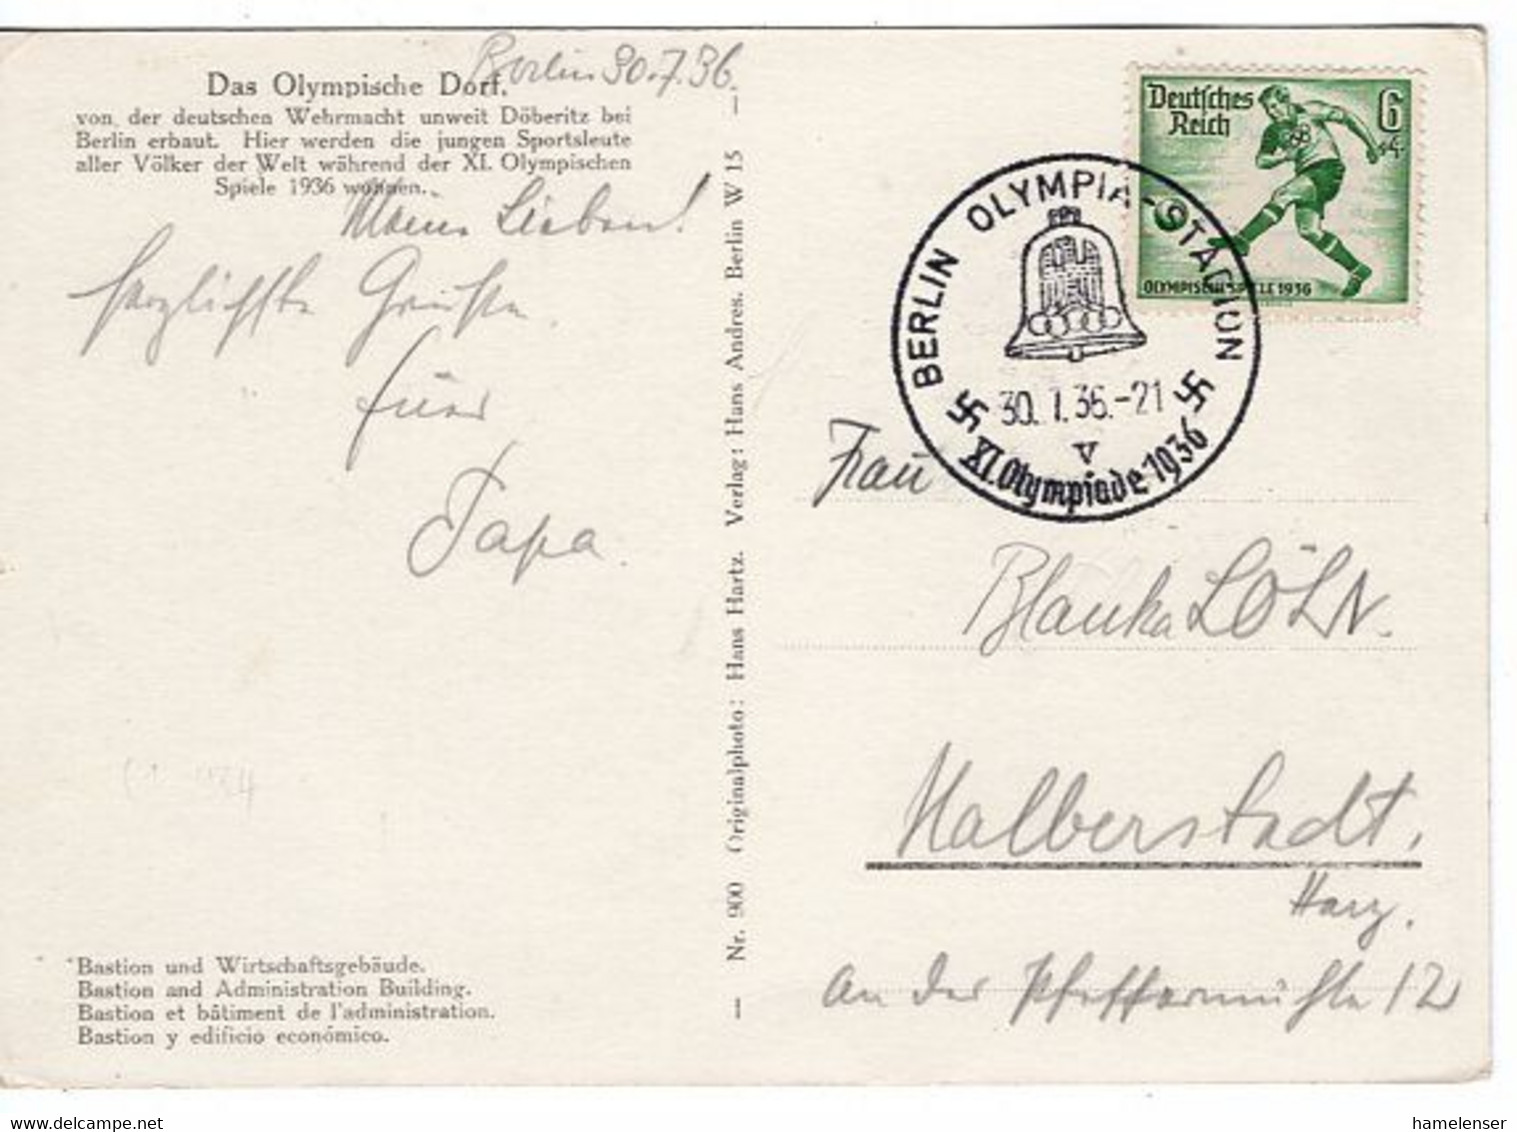 Berlin 30.7.36.
Das Olympische Dorf.
von der deutschen Wehrmacht unweit Döberitz bei
Berlin erbaut. Hier werden die jungen Sportsleute
aller Völker der Welt während der XI. Olympischen
Spiele 1936 wohnen.
Meine Lieben!
herzlichste Grüße
Euer
Papa.
Bastion und Wirtschaftsgebäude.
Bastion and Administration Building.
Bastion et bâtiment de l'administration.
Bastion y edificio económico.
— Nr. 900 Originalphoto: Hans Hartz. Verlag: Hans Andres. Berlin W 15 —
Deutsches
Reich
6
+4
OLYMPISCHE SPIELE 1936
BERLIN OLYMPIA-STADION
30.7.36.-21
v
XI. Olympiade 1936
Frau
Blanka LÖHN.
Halberstadt.
Harz.
An der Pfeffermühle 12
delcampe.net
hamelenser